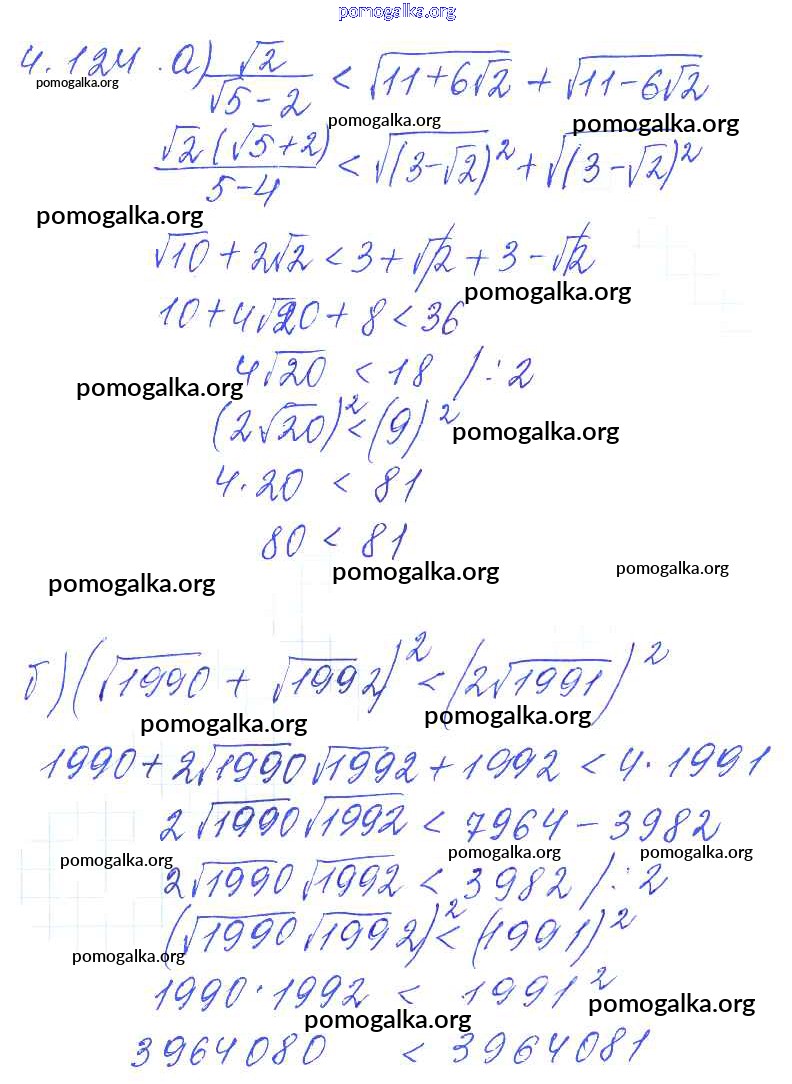 pomogalka.org
4.124. а) √2/(√5-2) < √(11+6√2) + √(11-6√2)
pomogalka.org
pomogalka.org pomogalka.org
√2(√5+2)/(5-4) < √(3-√2)² + √(3-√2)²
pomogalka.org
√10 + 2√2 < 3 + √2 + 3 - √2
pomogalka.org
10 + 4√20 + 8 < 36
4√20 < 18 / : 2
pomogalka.org
(2√20)² < (9)²
pomogalka.org
4·20 < 81
80 < 81
pomogalka.org pomogalka.org pomogalka.org
б) (√1990 + √1992)² < (2√1991)²
pomogalka.org pomogalka.org
1990 + 2√1990 √1992 + 1992 < 4·1991
2√1990 √1992 < 7964 - 3982
pomogalka.org pomogalka.org pomogalka.org
2√1990 √1992 < 3982 / : 2
(√1990 √1992)² < (1991)²
pomogalka.org
1990·1992 < 1991²
pomogalka.org pomogalka.org
3964080 < 3964081